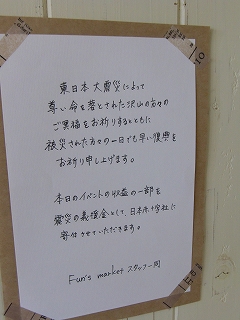 東日本大震災によって
尊い命を落とされた沢山の方々の
ご冥福をお祈りするとともに
被災された方々の一日でも早い復興を
お祈り申し上げます。
本日のイベントの収益の一部を
震災の義援金として、日本赤十字社に
寄付させていただきます。
Fun's market スタッフ一同